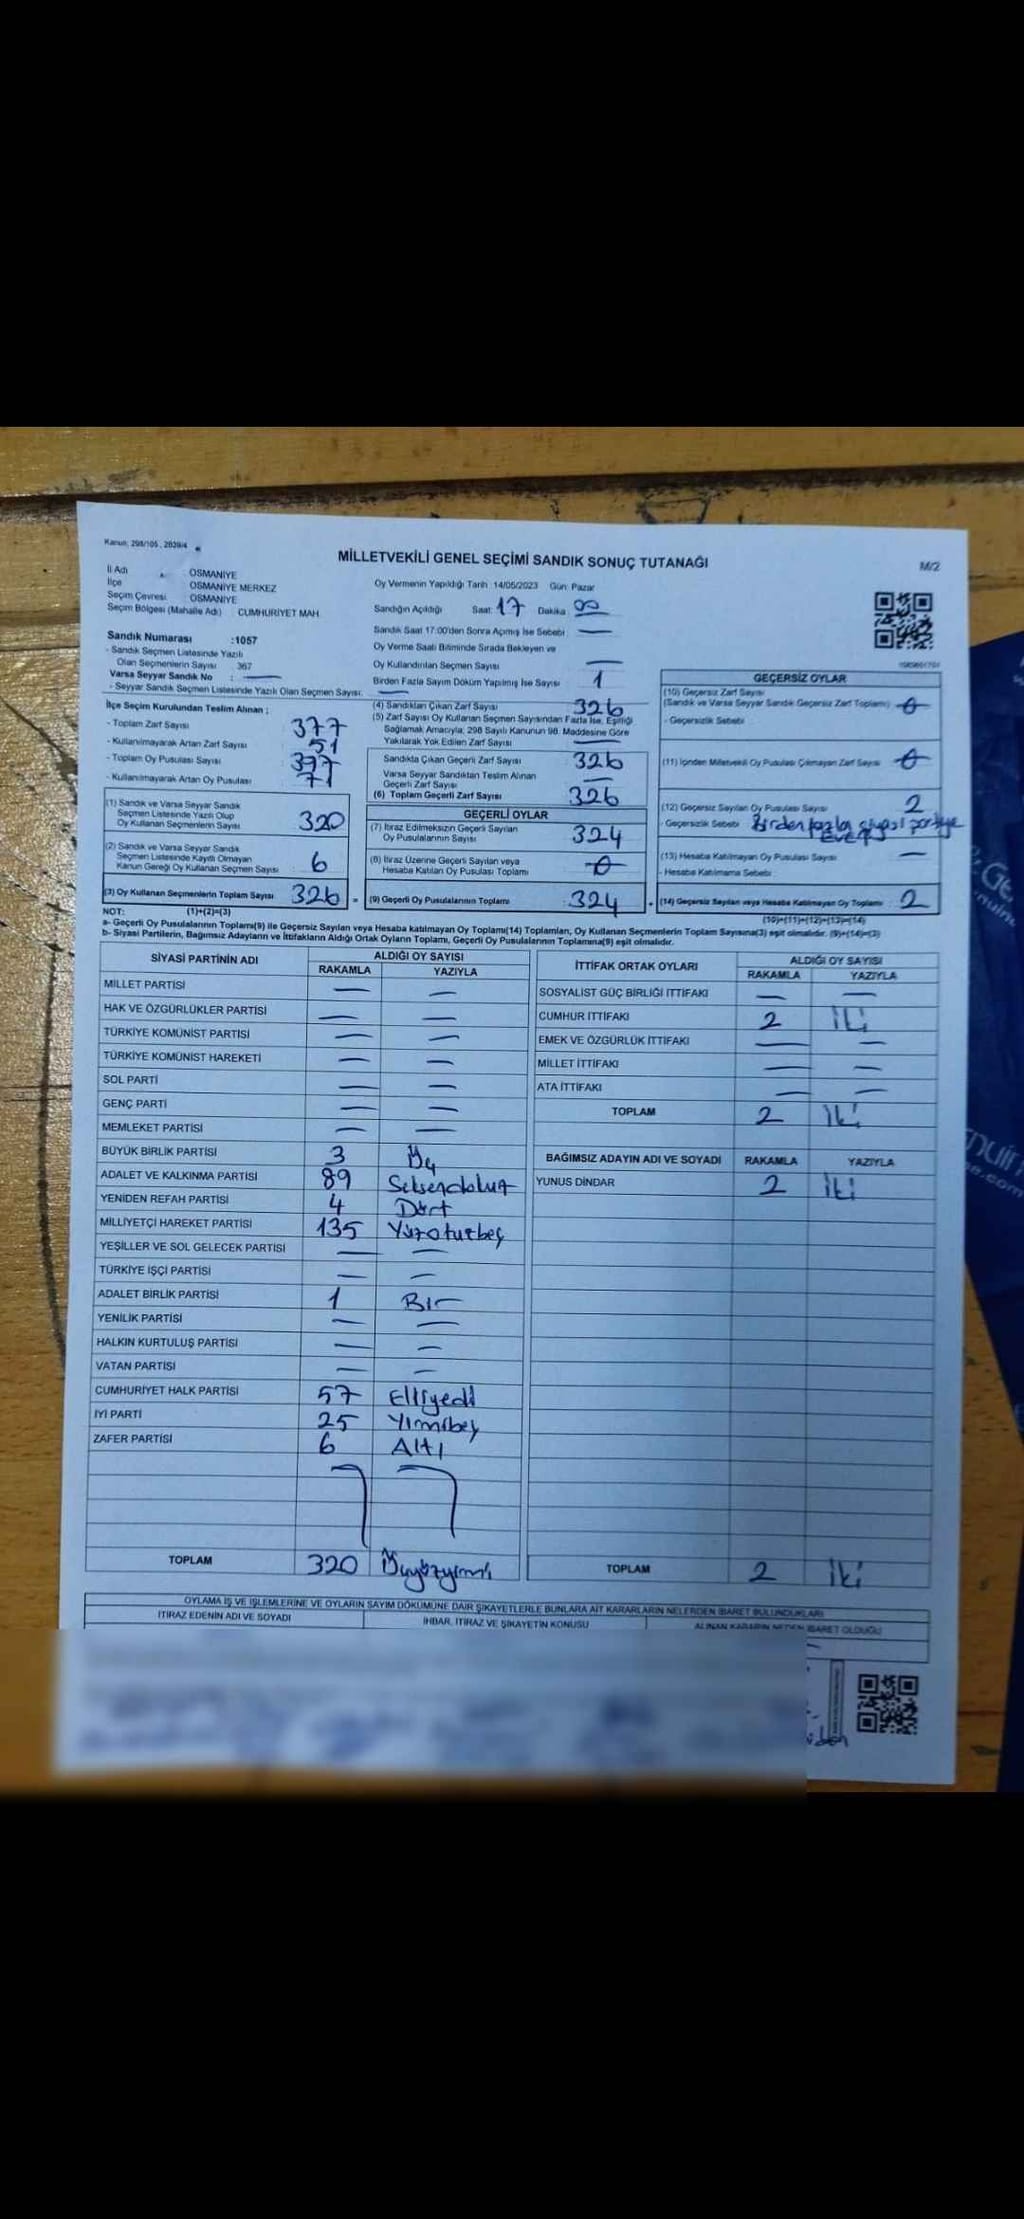 Kanun: 298/105, 2839/4
MİLLETVEKİLİ GENEL SEÇİMİ SANDIK SONUÇ TUTANAĞI
M/2
İl Adı OSMANİYE
İlçe OSMANİYE MERKEZ
Seçim Çevresi : OSMANİYE
Seçim Bölgesi (Mahalle Adı) CUMHURİYET MAH.
Oy Vermenin Yapıldığı Tarih 14/05/2023 Gün: Pazar
Sandığın Açıldığı Saat 17 Dakika 00
Sandık Saat 17:00'den Sonra Açılmış İse Sebebi : —
Oy Verme Saati Bitiminde Sırada Bekleyen ve
Oy Kullandırılan Seçmen Sayısı —
Birden Fazla Sayım Döküm Yapılmış İse Sayısı 1
Sandık Numarası :1057
- Sandık Seçmen Listesinde Yazılı
Olan Seçmenlerin Sayısı : 367
Varsa Seyyar Sandık No : —
- Seyyar Sandık Seçmen Listesinde Yazılı Olan Seçmen Sayısı: —
İlçe Seçim Kurulundan Teslim Alınan ;
- Toplam Zarf Sayısı 377
- Kullanılmayarak Artan Zarf Sayısı 51
- Toplam Oy Pusulası Sayısı 377
- Kullanılmayarak Artan Oy Pusulası 71
(1) Sandık ve Varsa Seyyar Sandık
Seçmen Listesinde Yazılı Olup
Oy Kullanan Seçmenlerin Sayısı 320
(2) Sandık ve Varsa Seyyar Sandık
Seçmen Listesinde Kayıtlı Olmayan
Kanun Gereği Oy Kullanan Seçmen Sayısı 6
(3) Oy Kullanan Seçmenlerin Toplam Sayısı 326
(4) Sandıktan Çıkan Zarf Sayısı 326
(5) Zarf Sayısı Oy Kullanan Seçmen Sayısından Fazla İse, Eşitliği
Sağlamak Amacıyla, 298 Sayılı Kanunun 98. Maddesine Göre
Yakılarak Yok Edilen Zarf Sayısı —
Sandıkta Çıkan Geçerli Zarf Sayısı 326
Varsa Seyyar Sandıktan Teslim Alınan
Geçerli Zarf Sayısı —
(6) Toplam Geçerli Zarf Sayısı 326
GEÇERLİ OYLAR
(7) İtiraz Edilmeksizin Geçerli Sayılan
Oy Pusulalarının Sayısı 324
(8) İtiraz Üzerine Geçerli Sayılan veya
Hesaba Katılan Oy Pusulası Toplamı 0
= (9) Geçerli Oy Pusulalarının Toplamı 324
GEÇERSİZ OYLAR
(10) Geçersiz Zarf Sayısı
(Sandık ve Varsa Seyyar Sandık Geçersiz Zarf Toplamı) 0
- Geçersizlik Sebebi
(11) İçinden Milletvekili Oy Pusulası Çıkmayan Zarf Sayısı 0
(12) Geçersiz Sayılan Oy Pusulası Sayısı 2
- Geçersizlik Sebebi Birden fazla siyasi partiye
EVET
(13) Hesaba Katılmayan Oy Pusulası Sayısı —
- Hesaba Katılmama Sebebi
+ (14) Geçersiz Sayılan veya Hesaba Katılmayan Oy Toplamı 2
NOT: (1)+(2)=(3)
(10)+(11)+(12)+(13)=(14)
a- Geçerli Oy Pusulalarının Toplamı(9) ile Geçersiz Sayılan veya Hesaba katılmayan Oy Toplamı(14) Toplamları, Oy Kullanan Seçmenlerin Toplam Sayısına(3) eşit olmalıdır. (9)+(14)=(3)
b- Siyasi Partilerin, Bağımsız Adayların ve İttifakların Aldığı Ortak Oyların Toplamı, Geçerli Oy Pusulalarının Toplamına(9) eşit olmalıdır.
SİYASİ PARTİNİN ADI ALDIĞI OY SAYISI
RAKAMLA YAZIYLA
MİLLET PARTİSİ — —
HAK VE ÖZGÜRLÜKLER PARTİSİ — —
TÜRKİYE KOMÜNİST PARTİSİ — —
TÜRKİYE KOMÜNİST HAREKETİ — —
SOL PARTİ — —
GENÇ PARTİ — —
MEMLEKET PARTİSİ — —
BÜYÜK BİRLİK PARTİSİ 3 Üç
ADALET VE KALKINMA PARTİSİ 89 Seksendokuz
YENİDEN REFAH PARTİSİ 4 Dört
MİLLİYETÇİ HAREKET PARTİSİ 135 Yüzotuzbeş
YEŞİLLER VE SOL GELECEK PARTİSİ — —
TÜRKİYE İŞÇİ PARTİSİ — —
ADALET BİRLİK PARTİSİ 1 Bir
YENİLİK PARTİSİ — —
HALKIN KURTULUŞ PARTİSİ — —
VATAN PARTİSİ — —
CUMHURİYET HALK PARTİSİ 57 Elliyedi
İYİ PARTİ 25 Yirmibeş
ZAFER PARTİSİ 6 Altı
TOPLAM 320 Üçyüzyirmi
İTTİFAK ORTAK OYLARI ALDIĞI OY SAYISI
RAKAMLA YAZIYLA
SOSYALİST GÜÇ BİRLİĞİ İTTİFAKI — —
CUMHUR İTTİFAKI 2 İki
EMEK VE ÖZGÜRLÜK İTTİFAKI — —
MİLLET İTTİFAKI — —
ATA İTTİFAKI — —
TOPLAM 2 İki
BAĞIMSIZ ADAYIN ADI VE SOYADI RAKAMLA YAZIYLA
YUNUS DİNDAR 2 İki
TOPLAM 2 İki
OYLAMA İŞ VE İŞLEMLERİNE VE OYLARIN SAYIM DÖKÜMÜNE DAİR ŞİKAYETLERLE BUNLARA AİT KARARLARIN NELERDEN İBARET BULUNDUKLARI
İTİRAZ EDENİN ADI VE SOYADI İHBAR, İTİRAZ VE ŞİKAYETİN KONUSU ALINAN KARARIN NEDEN İBARET OLDUĞU